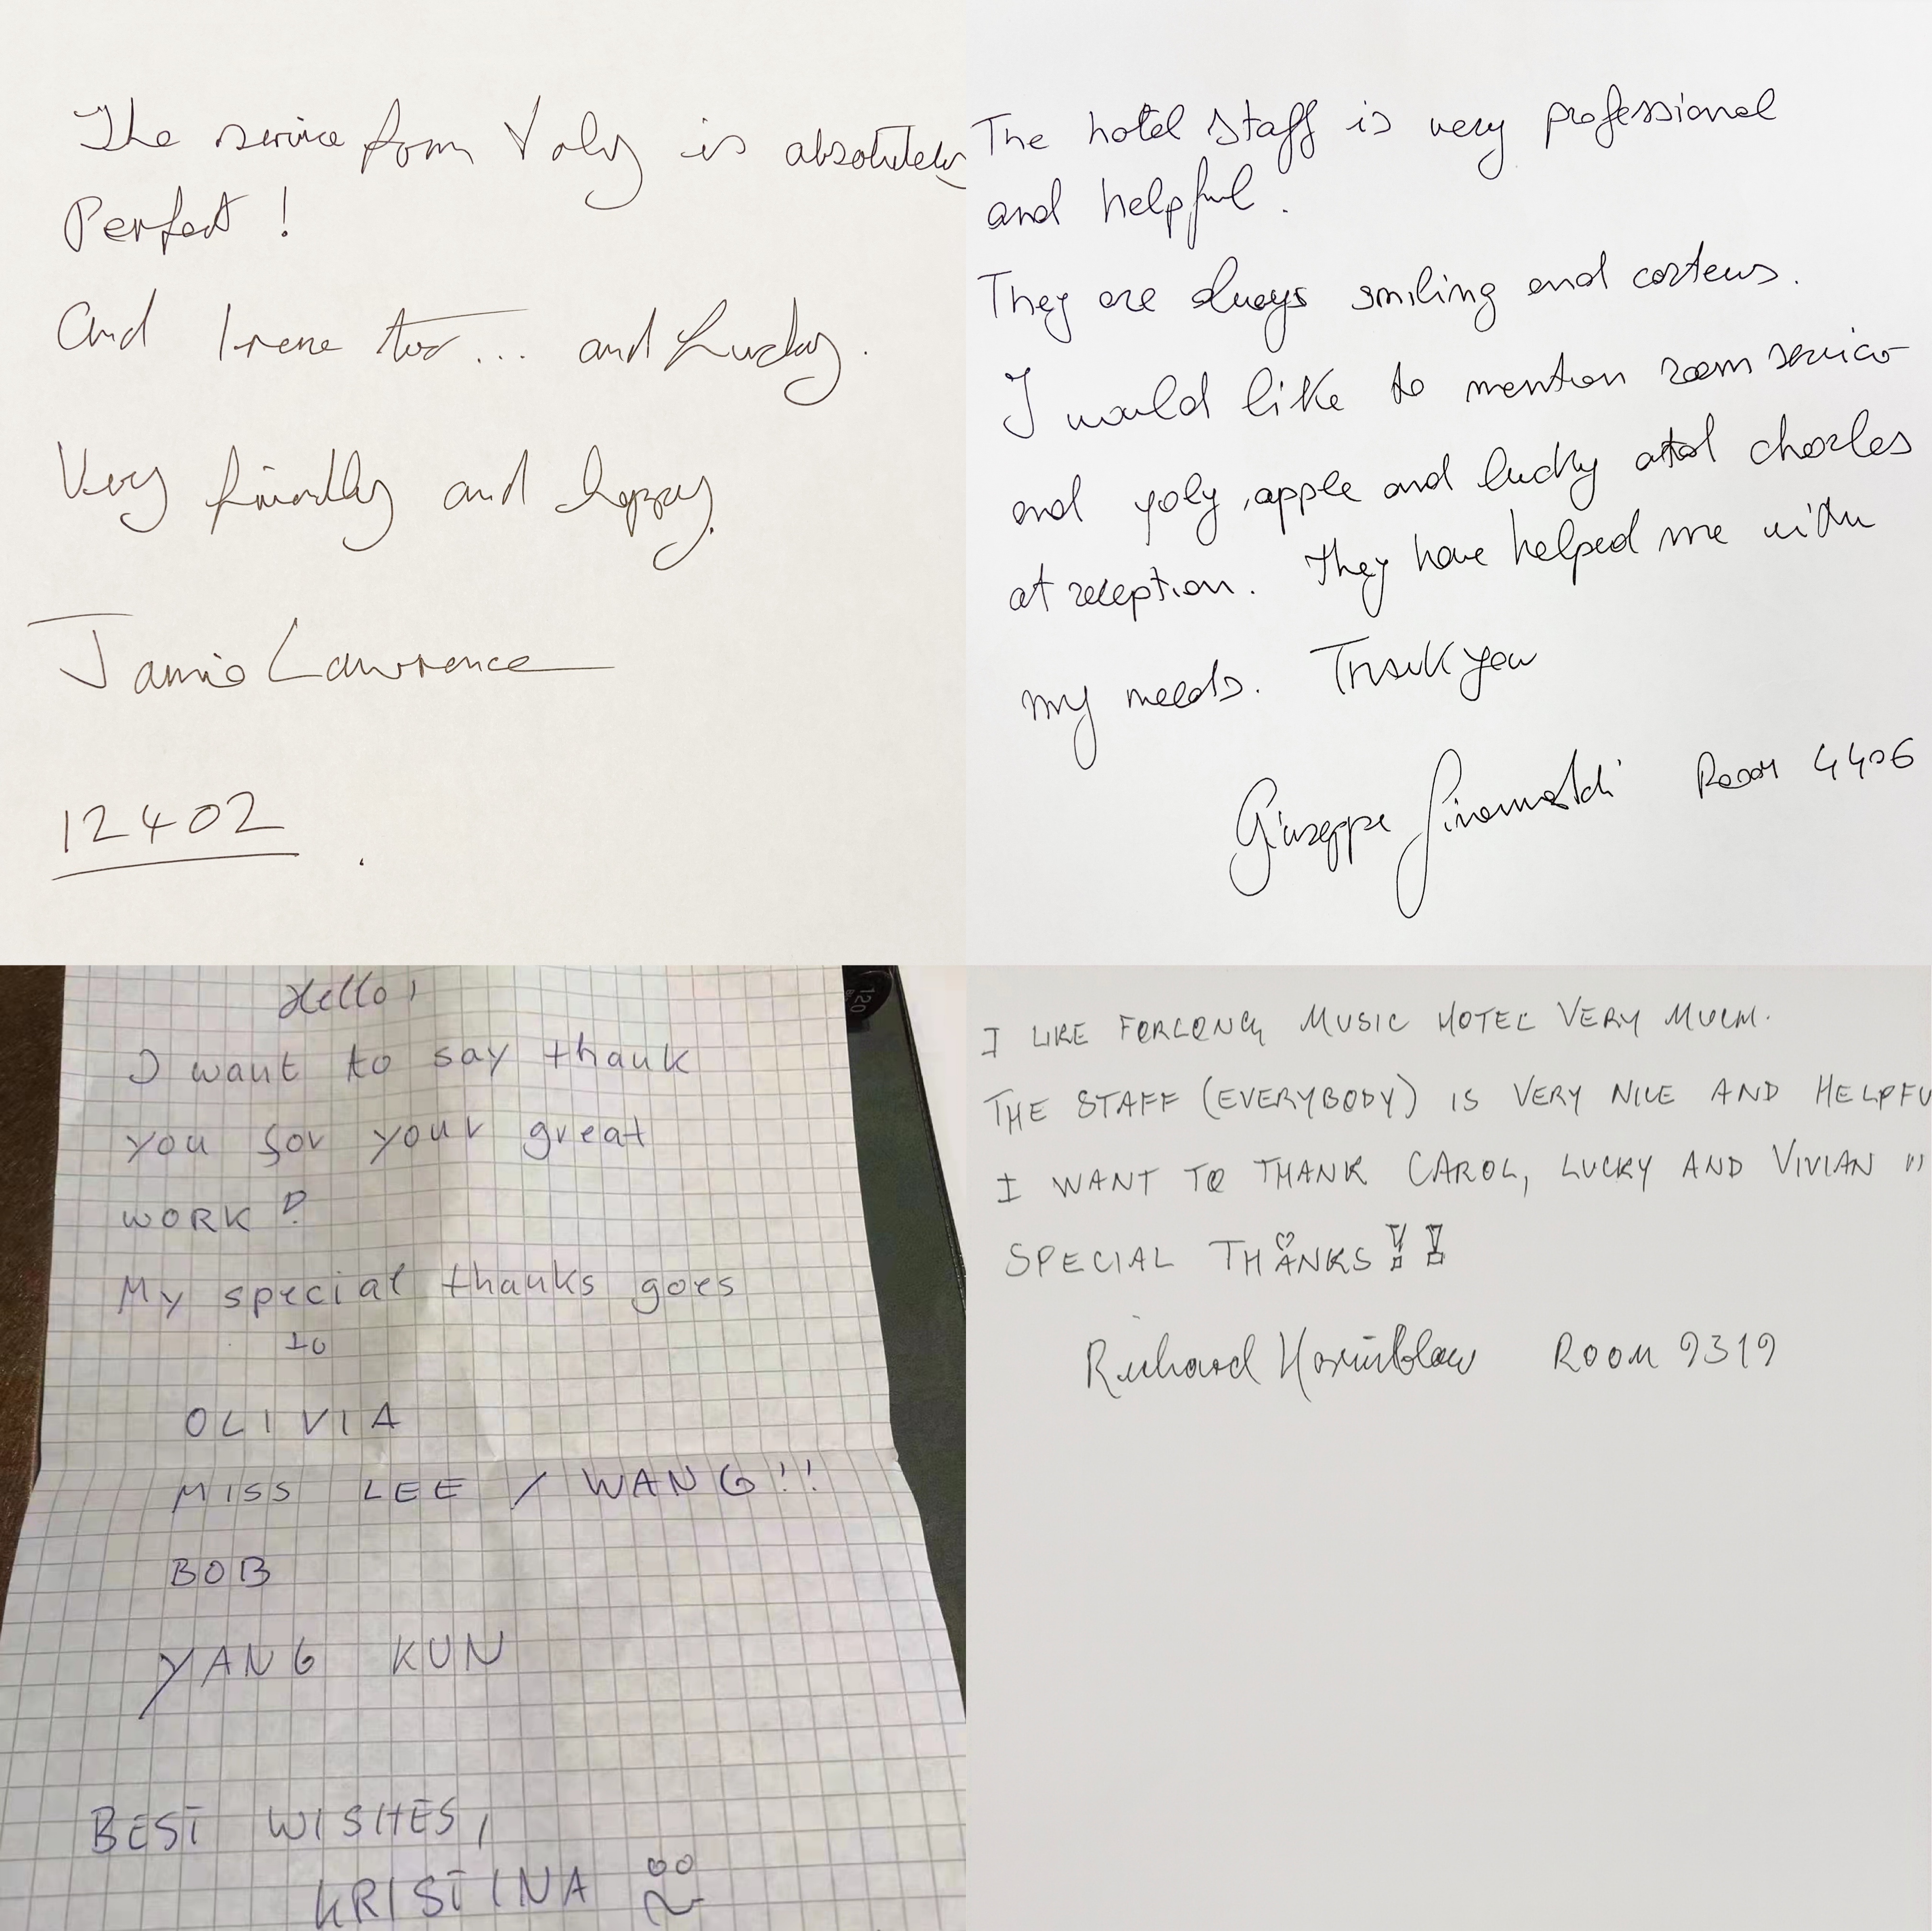 The service from Yoly is absolutely
Perfect !
And Irene too... and Lucky.
Very friendly and happy.
Jamie Lawrence
12402
The hotel staff is very professional
and helpful.
They are always smiling and corteus.
I would like to mention room service
and yoly, apple and lucky and charles
at reception. They have helped me with
my needs. Thank you
Giuseppe Room 4406
Hello,
I want to say thank
you for your great
WORK !
My special thanks goes
to
OLIVIA
MISS LEE / WANG!!
BOB
YANG KUN
BEST WISHES,
KRISTINA
I LIKE FORLONG MUSIC HOTEL VERY MUCH.
THE STAFF (EVERYBODY) IS VERY NICE AND HELPFU
I WANT TO THANK CAROL, LUCKY AND VIVIAN !!
SPECIAL THANKS !!
Richard Hornblow ROOM 9319